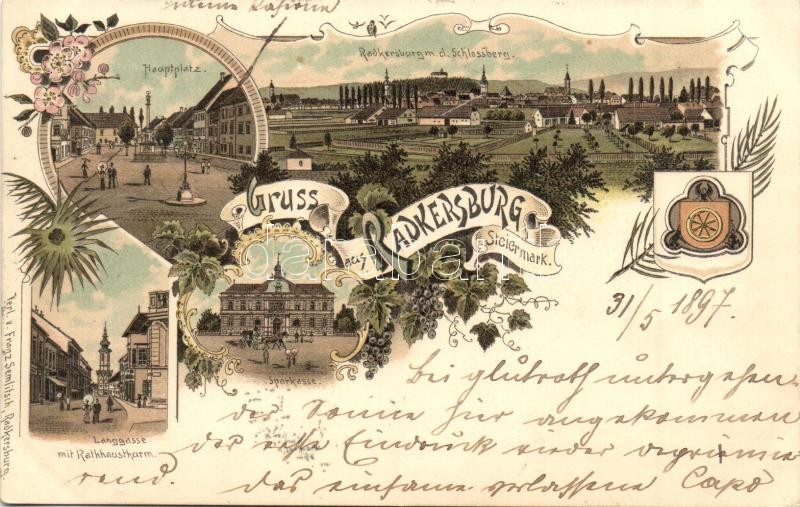 Hauptplatz.
Radkersburg m. d. Schlossberg.
Gruss
aus RADKERSBURG
Steiermark.
Sparkasse.
Langgasse
mit Rathhausthurm.
Verl. v. Franz Semlitsch, Radkersburg.
darabanth
31/5 1897.
Bei glutroth untergehen-
der Sonne hier angekommen
der erste Eindruck wieder deprimie
rend. Das einsame verlassene Capo